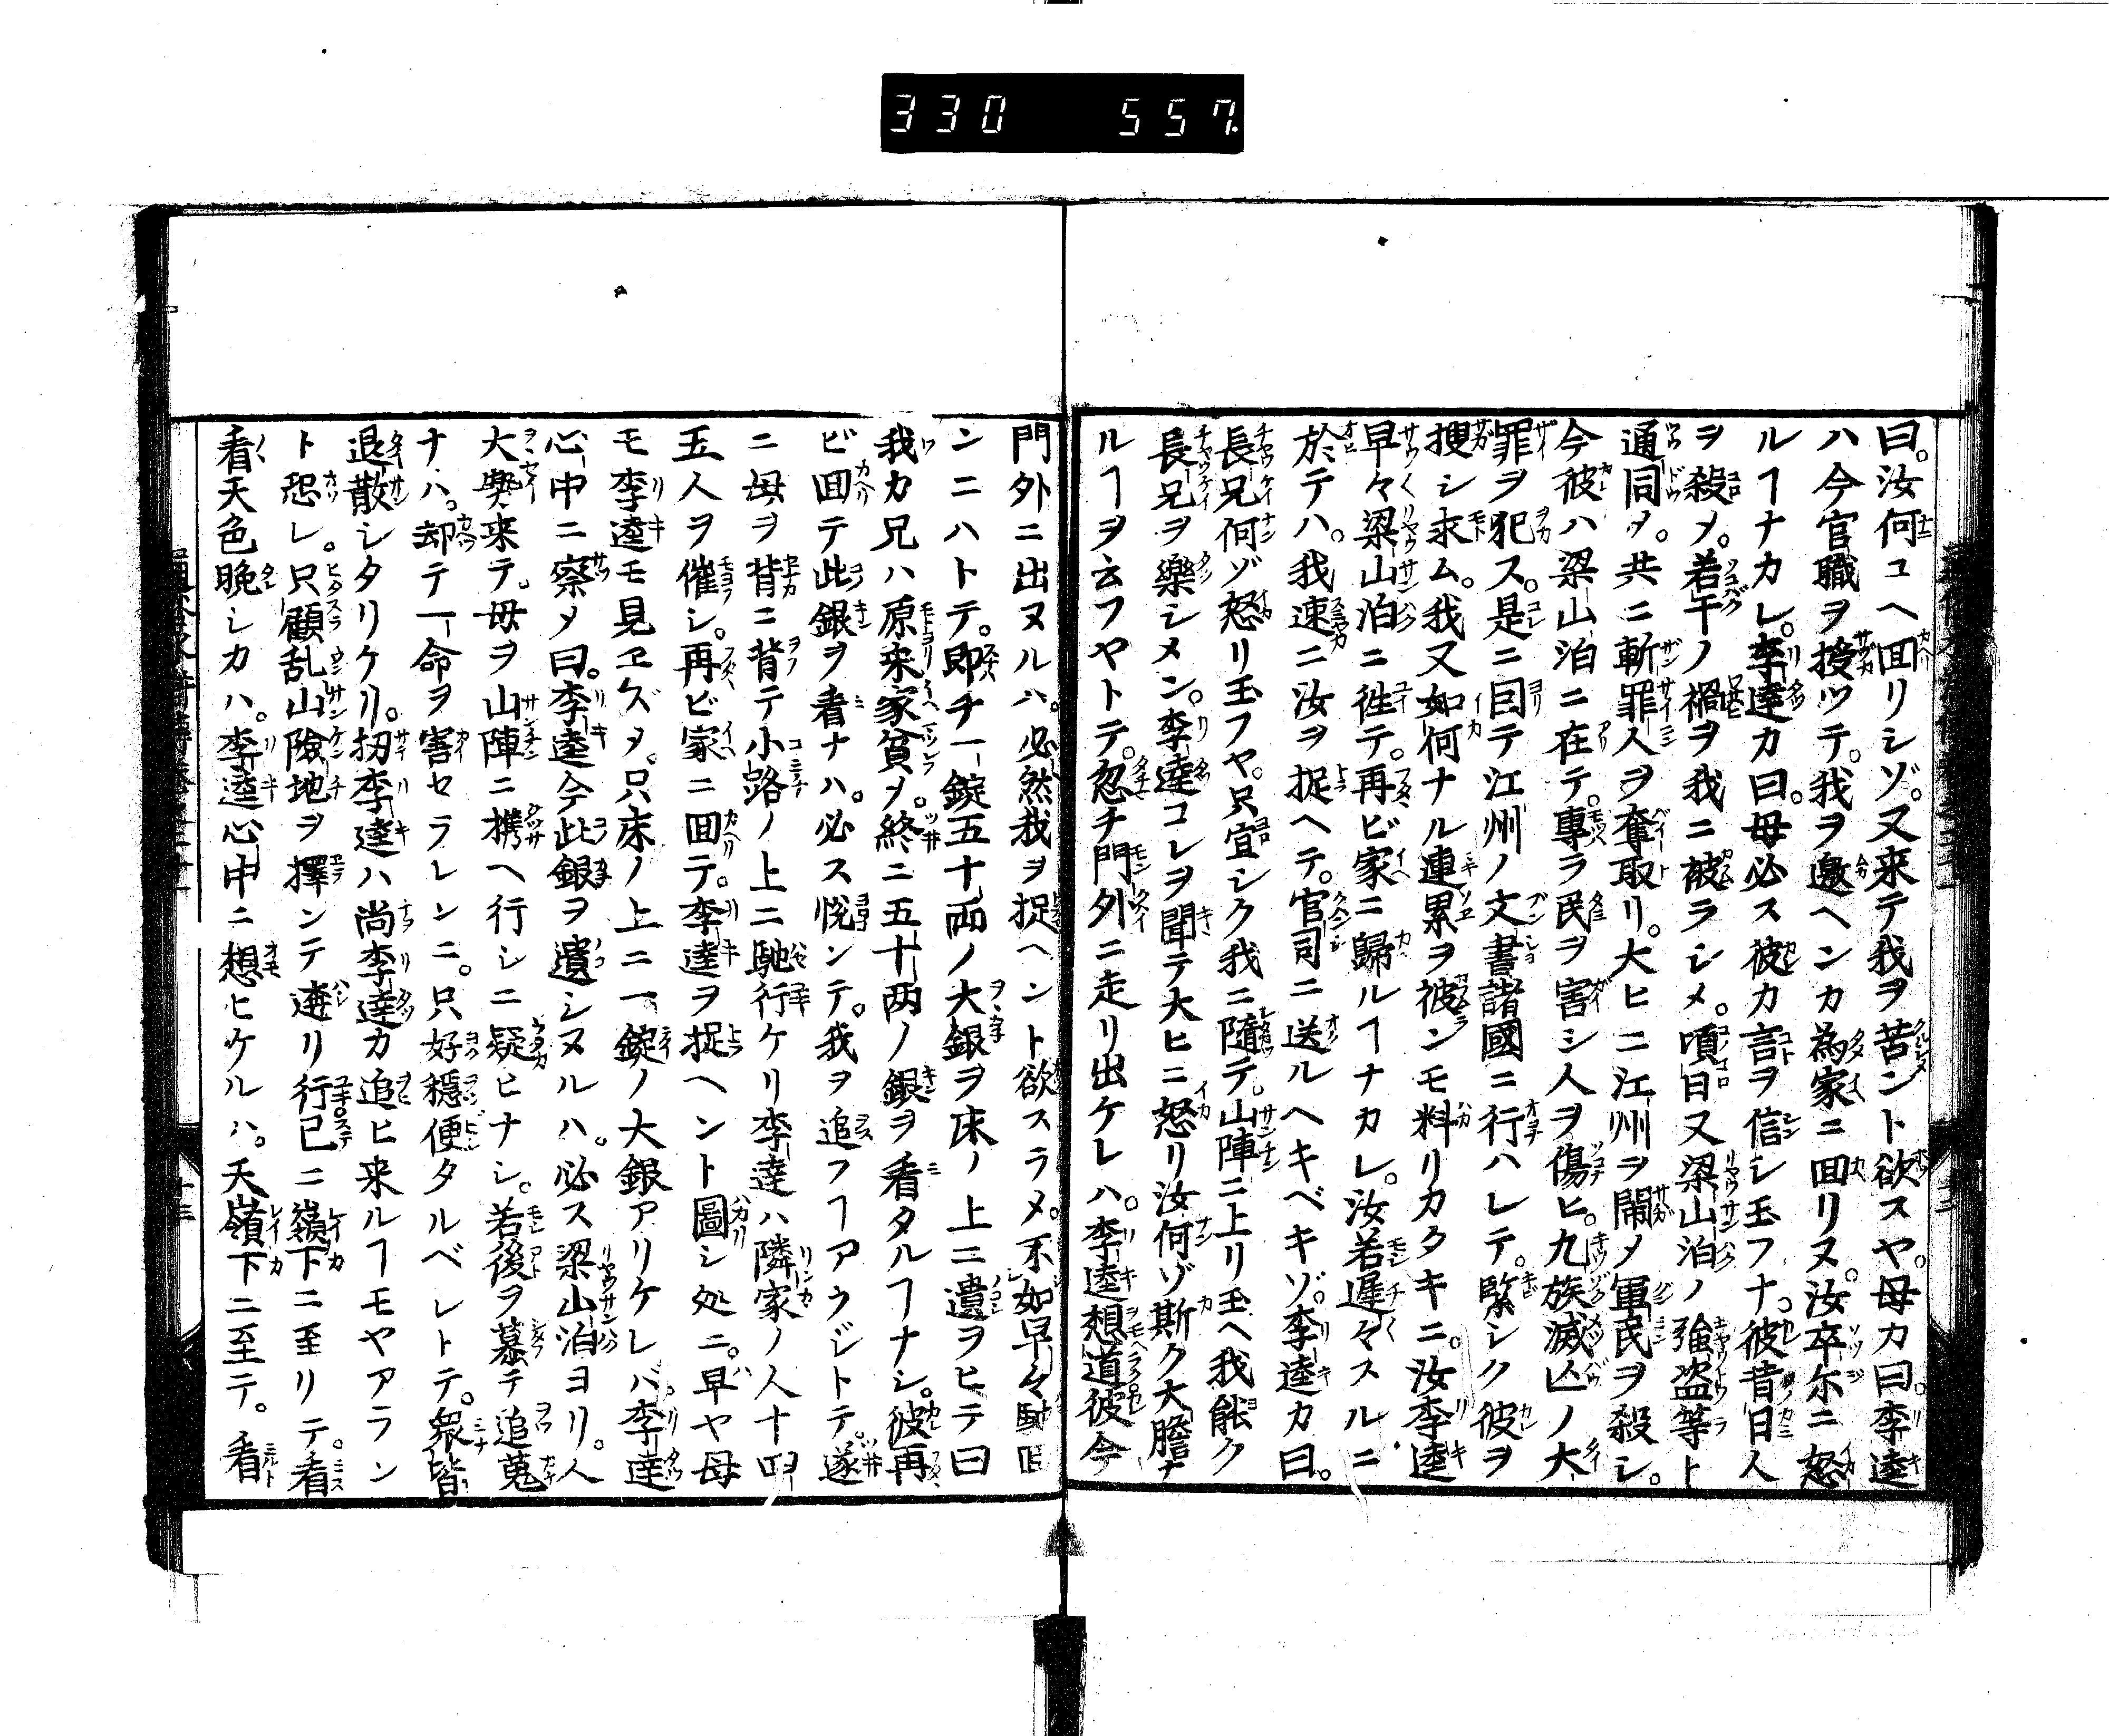 330 557.
曰。汝何ユヘ囬リシゾ。又来テ我ヲ苦ント欲スヤ。母カ曰。李逵
ハ今官職ヲ授ツテ。我ヲ邀ヘンカ為家ニ囬リヌ。汝卒尓ニ怒
ルヿナカレ。李達カ曰。母必ス彼カ言ヲ信シ玉フナ。彼昔日人
ヲ殺メ。若干ノ禍ヲ我ニ被ラシメ。頃日又梁山泊ノ強盗等ト
通同メ。共ニ斬罪人ヲ奪取リ。大ヒニ江州ヲ閙メ軍民ヲ殺シ。
今彼ハ梁山泊ニ在テ。專ラ民ヲ害シ人ヲ傷ヒ。九族滅亡ノ大
罪ヲ犯ス。是ニ因テ江州ノ文書諸國ニ行ハレテ。緊シク彼ヲ
捜シ求ム。我又如何ナル連累ヲ被ンモ料リカタキニ。汝李逵
早々梁山泊ニ徃テ。再ビ家ニ歸ルヿナカレ。汝若遅々スルニ
於テハ。我速ニ汝ヲ捉ヘテ。官司ニ送ルヘキベキゾ。李逵カ曰。
長兄何ゾ怒リ玉フヤ。只宜シク我ニ隨テ。山陣ニ上リ玉ヘ我能ク
長兄ヲ樂シメン。李達コレヲ聞テ大ヒニ怒リ汝何ゾ斯ク大膽ナ
ルヿヲ云フヤトテ。忽チ門外ニ走リ出ケレハ。李逵想道彼今
門外ニ出ヌルハ。必然我ヲ捉ヘント欲スラメ。不如早々馳囬
ンニハトテ。即チ一錠五十両ノ大銀ヲ床ノ上ニ遺ヲヒテ曰
我カ兄ハ原来家貧ソ。終ニ五十两ノ銀ヲ看タルヿナシ。彼再
ビ囬テ此銀ヲ看ナハ。必ス悦ンテ。我ヲ追フヿアラジトテ。遂
ニ母ヲ背ニ背テ小路ノ上ニ馳行ケリ李達ハ隣家ノ人十四
五人ヲ催シ。再ビ家ニ囬テ。李逵ヲ捉ヘント圖シ処ニ。早ヤ母
モ李逵モ見ヱズメ。只床ノ上ニ一錠ノ大銀アリケレバ。李達
心中ニ察メ曰。李逵今此銀ヲ遺シヌルハ。必ス梁山泊ヨリ。人
大㔟来テ。母ヲ山陣ニ携ヘ行シニ疑ヒナシ。若後ヲ慕テ追蒐
ナハ。却テ一命ヲ害セラレンニ。只好穩便タルベレトテ。衆皆
退散シタリケリ。扨李逵ハ尚李達カ追ヒ来ルヿモヤアラン
ト恐レ。只顧乱山險地ヲ擇ンテ迯リ行已ニ嶺下ニ至リテ。看
看天色晩シカハ。李逵心中ニ想ヒケルハ。天嶺下ニ至テ。看